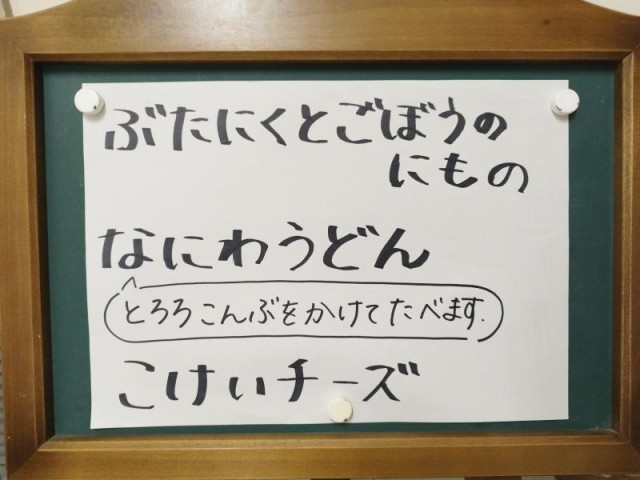 ぶたにくとごぼうの
にもの
なにわうどん
とろろこんぶをかけてたべます.
こけいチーズ